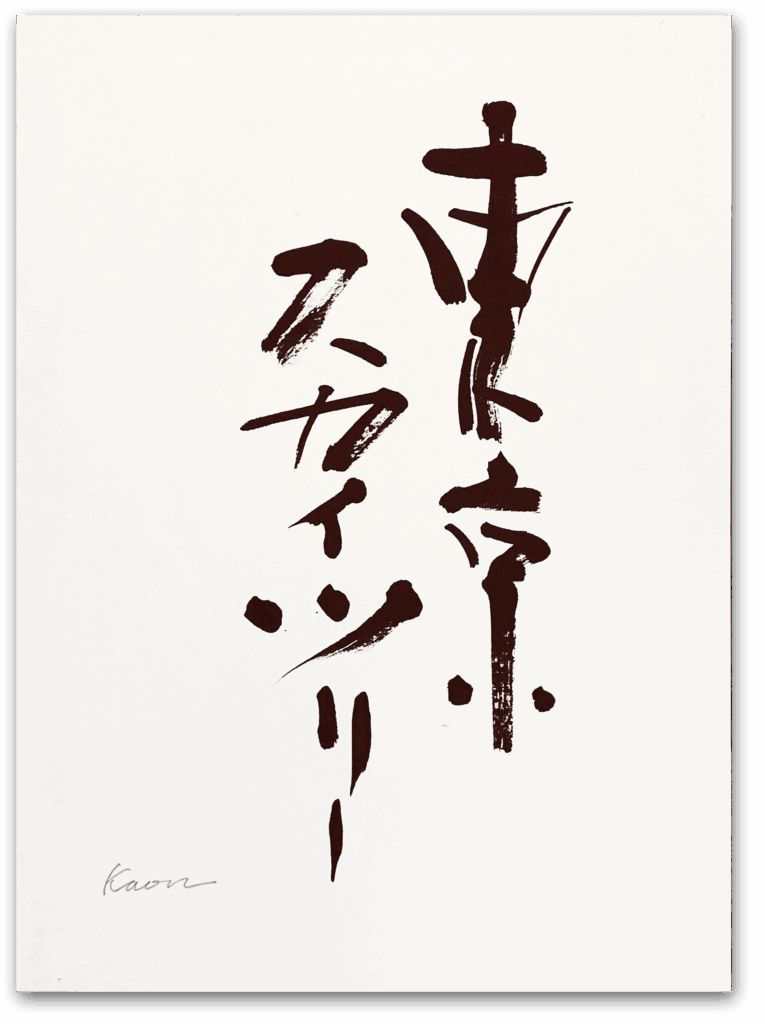 東京
スカイツリー
Kaon